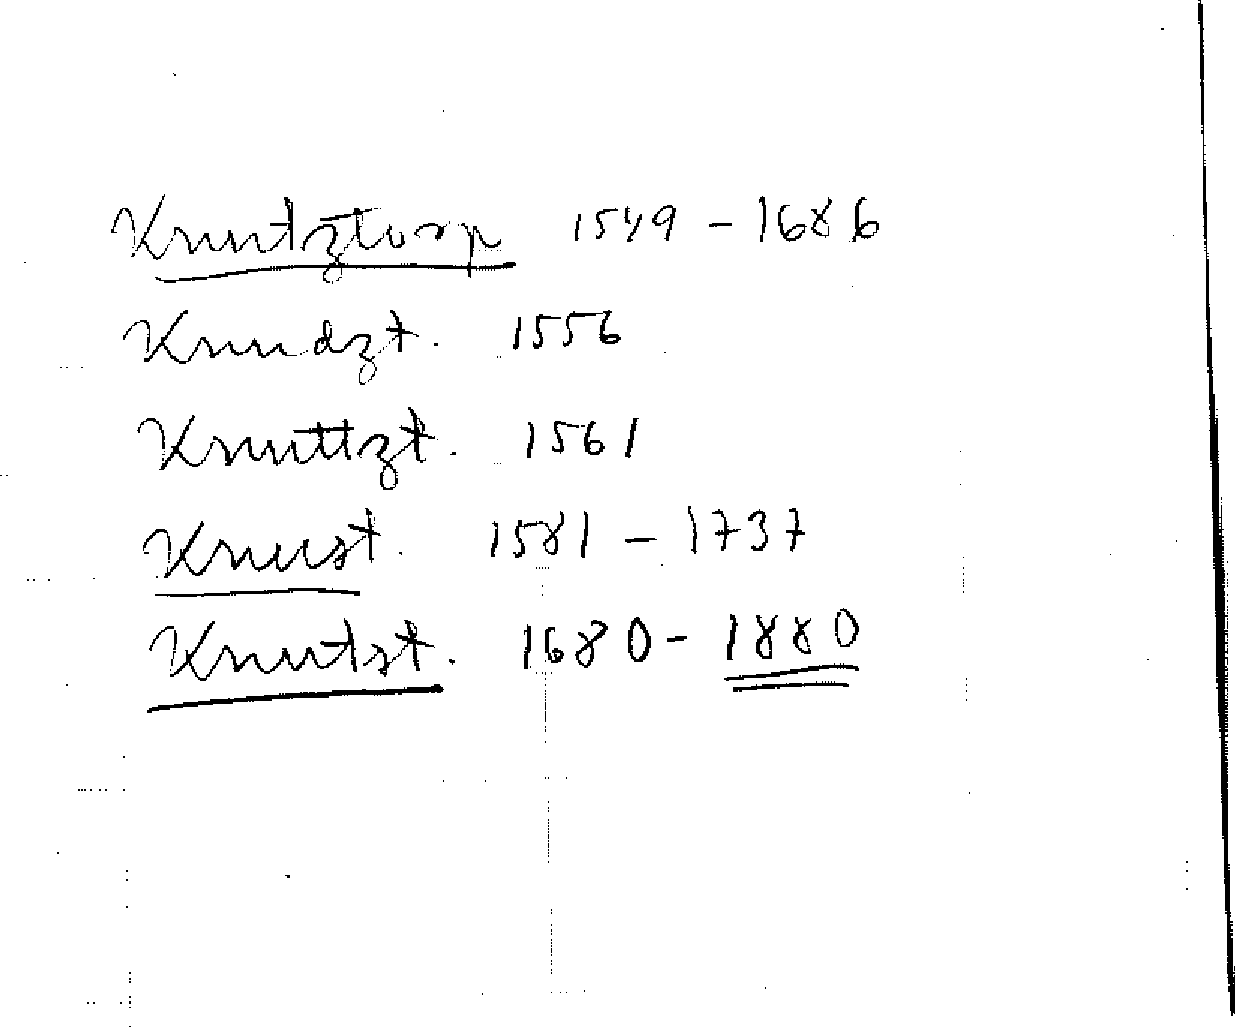 Knutztorp 1549 - 1686
Knudzt. 1556
Knuttzt. 1561
Knust. 1581 - 1737
Knutst. 1680 - 1880